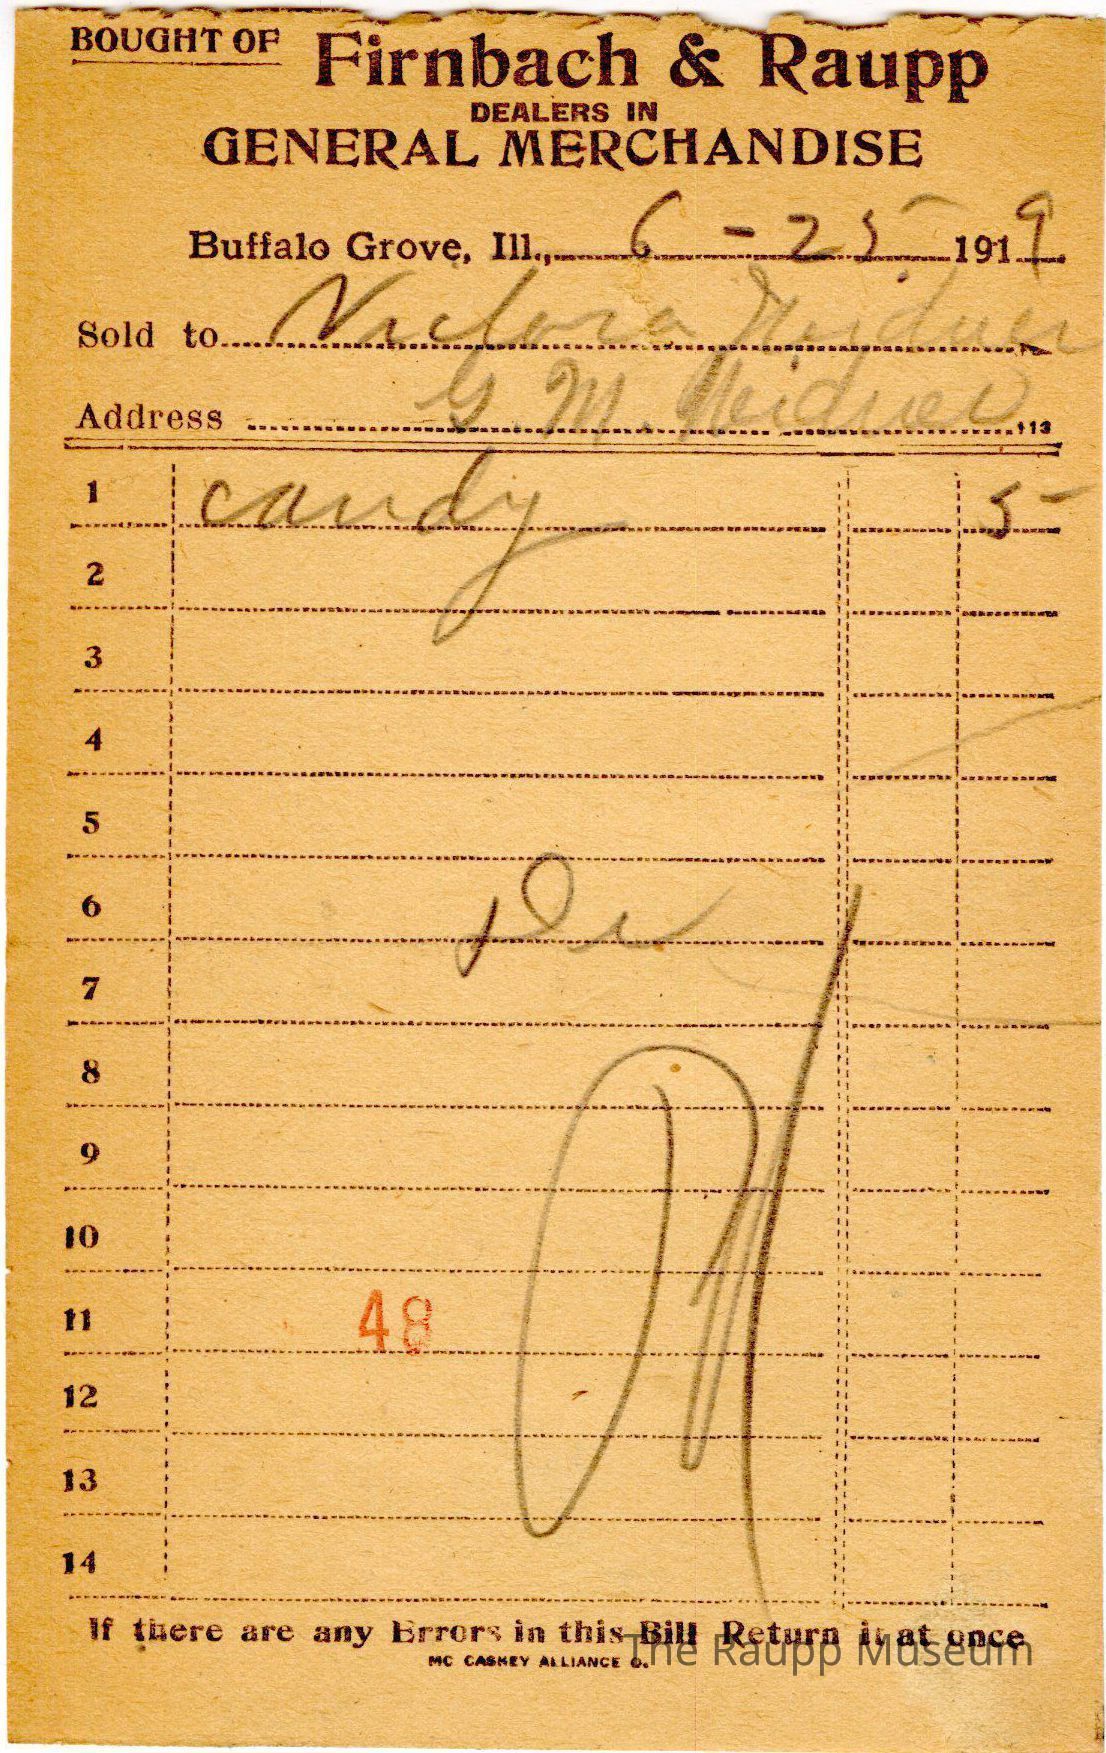 BOUGHT OF Firnbach & Raupp
DEALERS IN
GENERAL MERCHANDISE
Buffalo Grove, Ill., 6 - 25 1919
Sold to Victoria Weidner
Address G. M. Weidner 113
1 candy 5
2
3
4
5
6
7
8
9
10
11 48
12
13
14
If there are any Errors in this Bill Return it at once
MC CASKEY ALLIANCE O.
The Raupp Museum